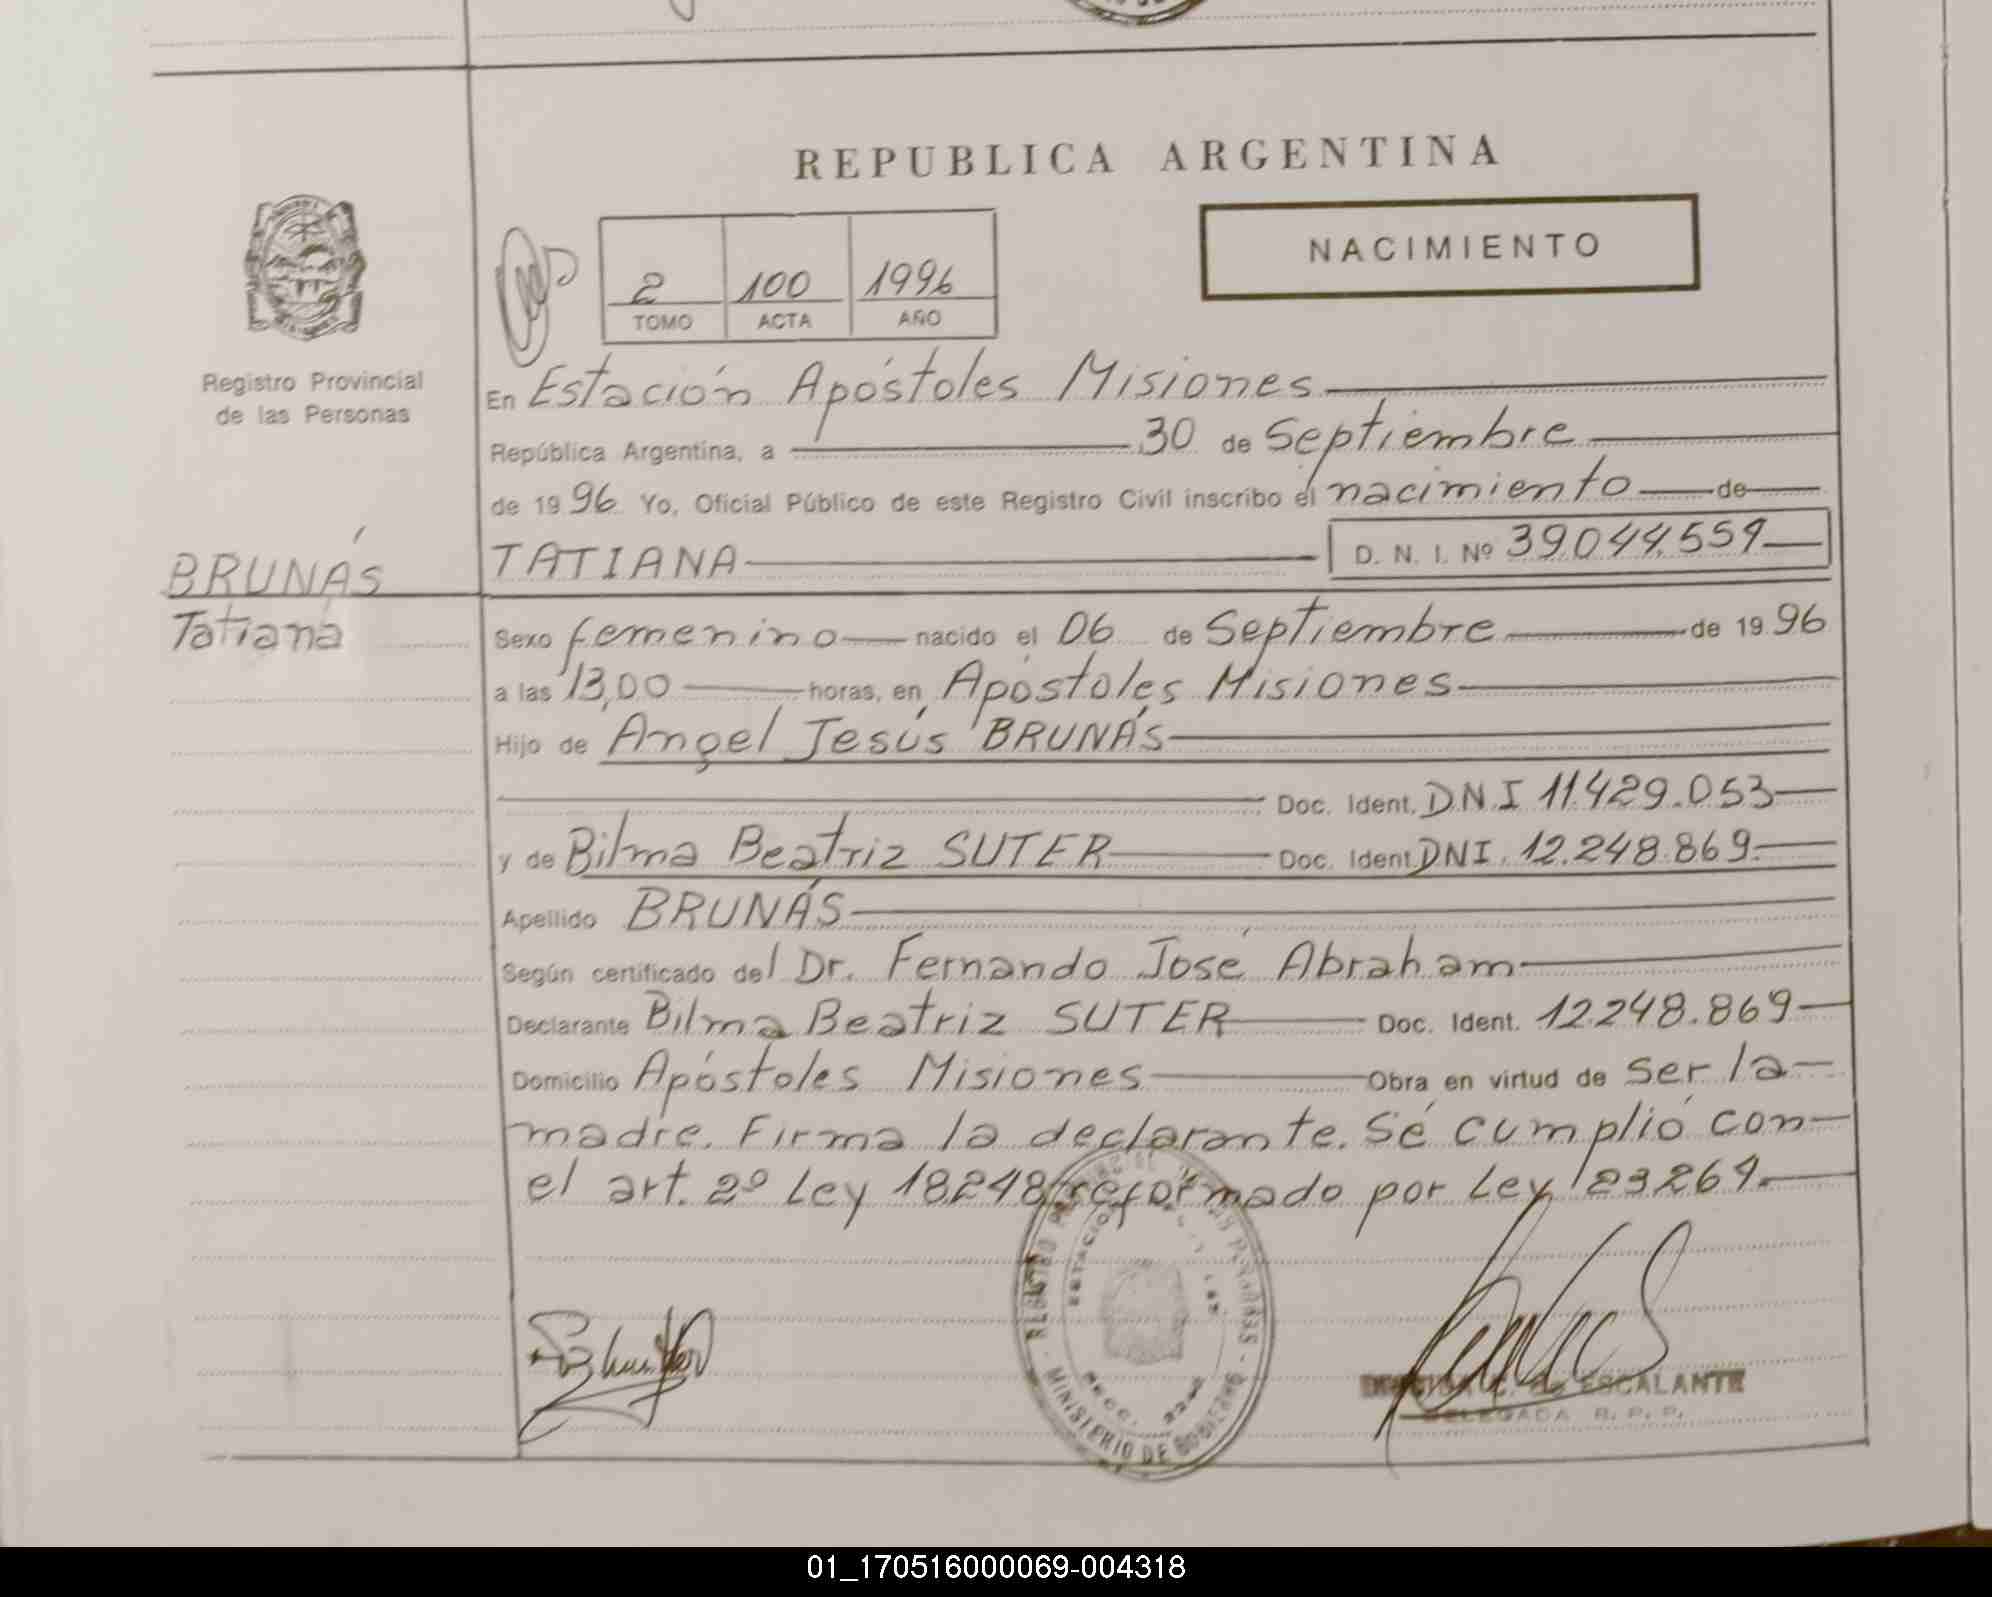 REPUBLICA ARGENTINA
NACIMIENTO
2 100 1996
TOMO ACTA AÑO
Registro Provincial
de las Personas
En Estación Apóstoles Misiones
República Argentina, a 30 de Septiembre
de 1996 Yo, Oficial Público de este Registro Civil inscribo el nacimiento de
BRUNÁS
TATIANA D. N. I. Nº 39.044.559
Tatiana
Sexo femenino nacido el 06 de Septiembre de 1996
a las 13,00 horas, en Apóstoles Misiones
Hijo de Angel Jesús BRUNÁS
Doc. Ident. D.N.I 11.429.053
y de Bilma Beatriz SUTER Doc. Ident. DNI. 12.248.869.
Apellido BRUNÁS
Según certificado del Dr. Fernando José Abraham
Declarante Bilma Beatriz SUTER Doc. Ident. 12.248.869
Domicilio Apóstoles Misiones Obra en virtud de ser la
madre. Firma la declarante. Sé cumplió con
el art. 2º Ley 18248 reformado por Ley 23264.
REGISTRO PERSONAS
MINISTERIO DE GOBIERNO
ESCALANTE
DELEGADA R. P. P.
01_170516000069-004318